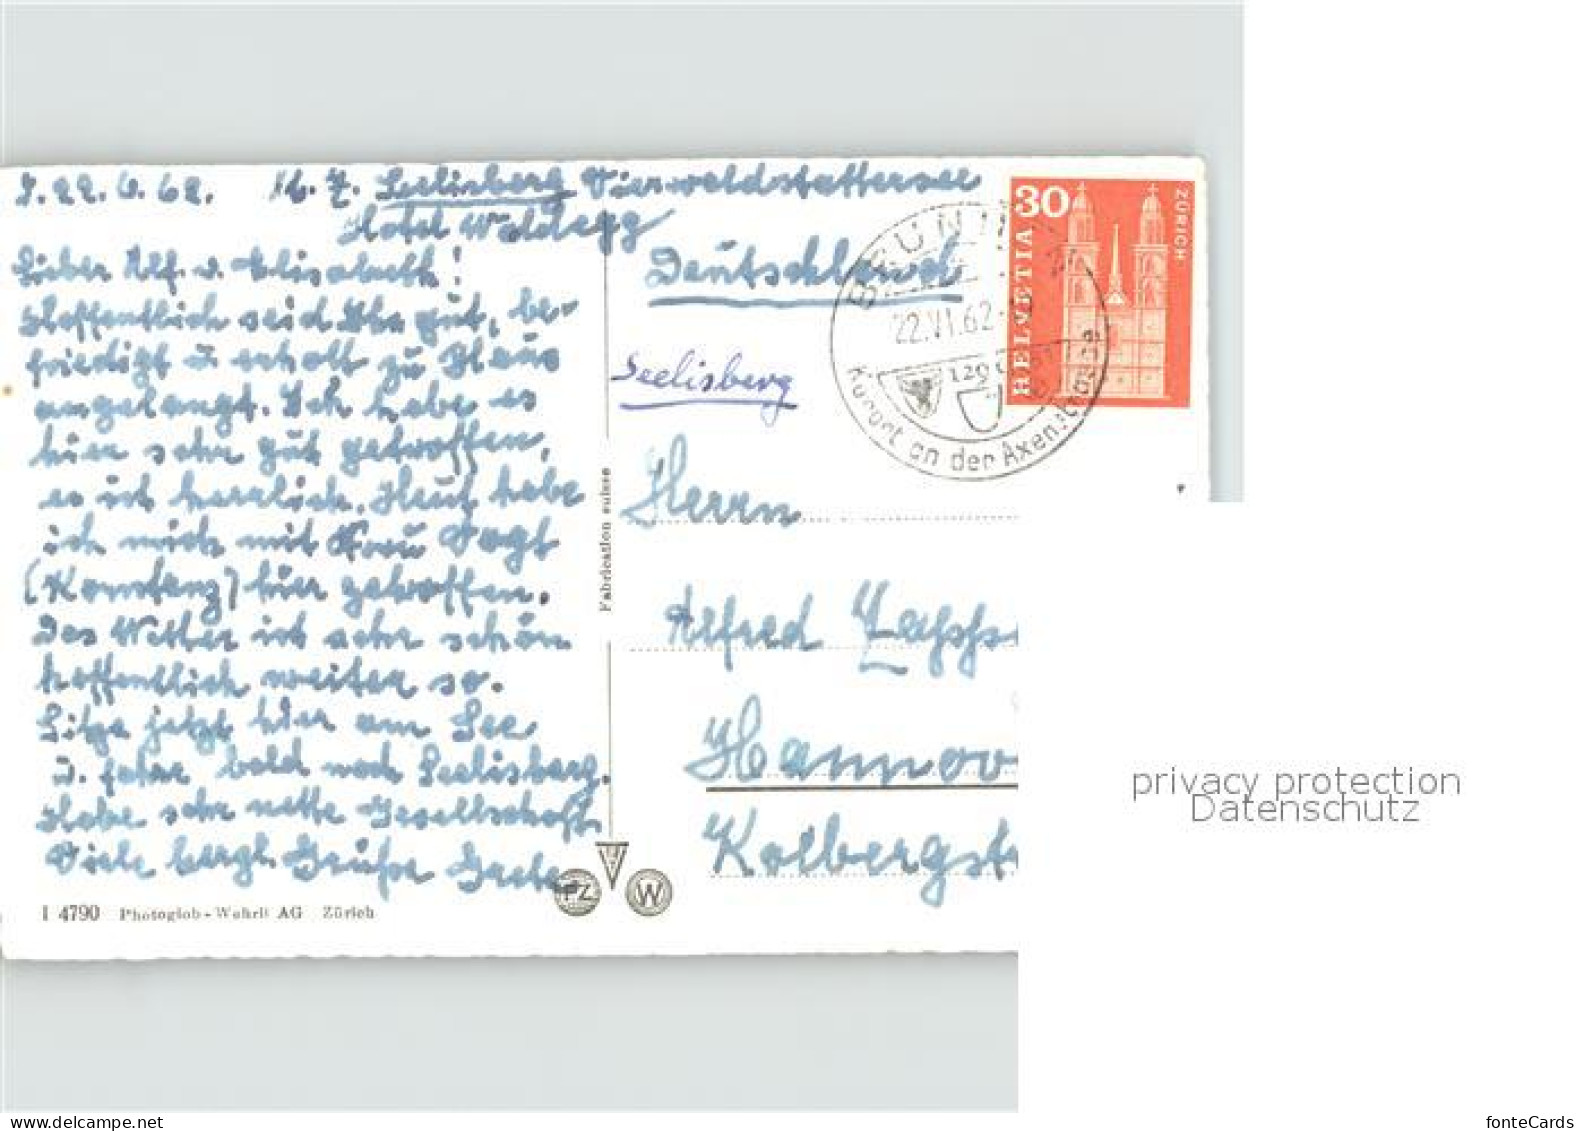 22.6.62. z. Z. Seelisberg Vierwaldstattersee
Hotel Waldegg
Lieber Alf. u. Elisabeth!
Hoffentlich seid Ihr gut, be-
friedigt u. erholt zu Haus
angelangt. Ich habe es
hier sehr gut getroffen,
es ist herrlich. Heut habe
ich mich mit Frau Vogt
(Konstanz) hier getroffen.
Das Wetter ist sehr schön
hoffentlich weiter so.
Sitze jetzt hier am See
u. fahre bald nach Seelisberg.
Habe sehr nette Gesellschaft.
Viele herzl. Grüße
I 4790 Photoglob-Wehrli AG Zürich
Fabrication suisse
PZ
W
Deutschland
Seelisberg
Herrn
Alfred
Hannov
Kolbergst
BRUNN
22.VI.62
1291
Kurort an der Axenstrasse
30
HELVETIA
ZÜRICH
privacy protection
Datenschutz
https://www.delcampe.net
fonteCards